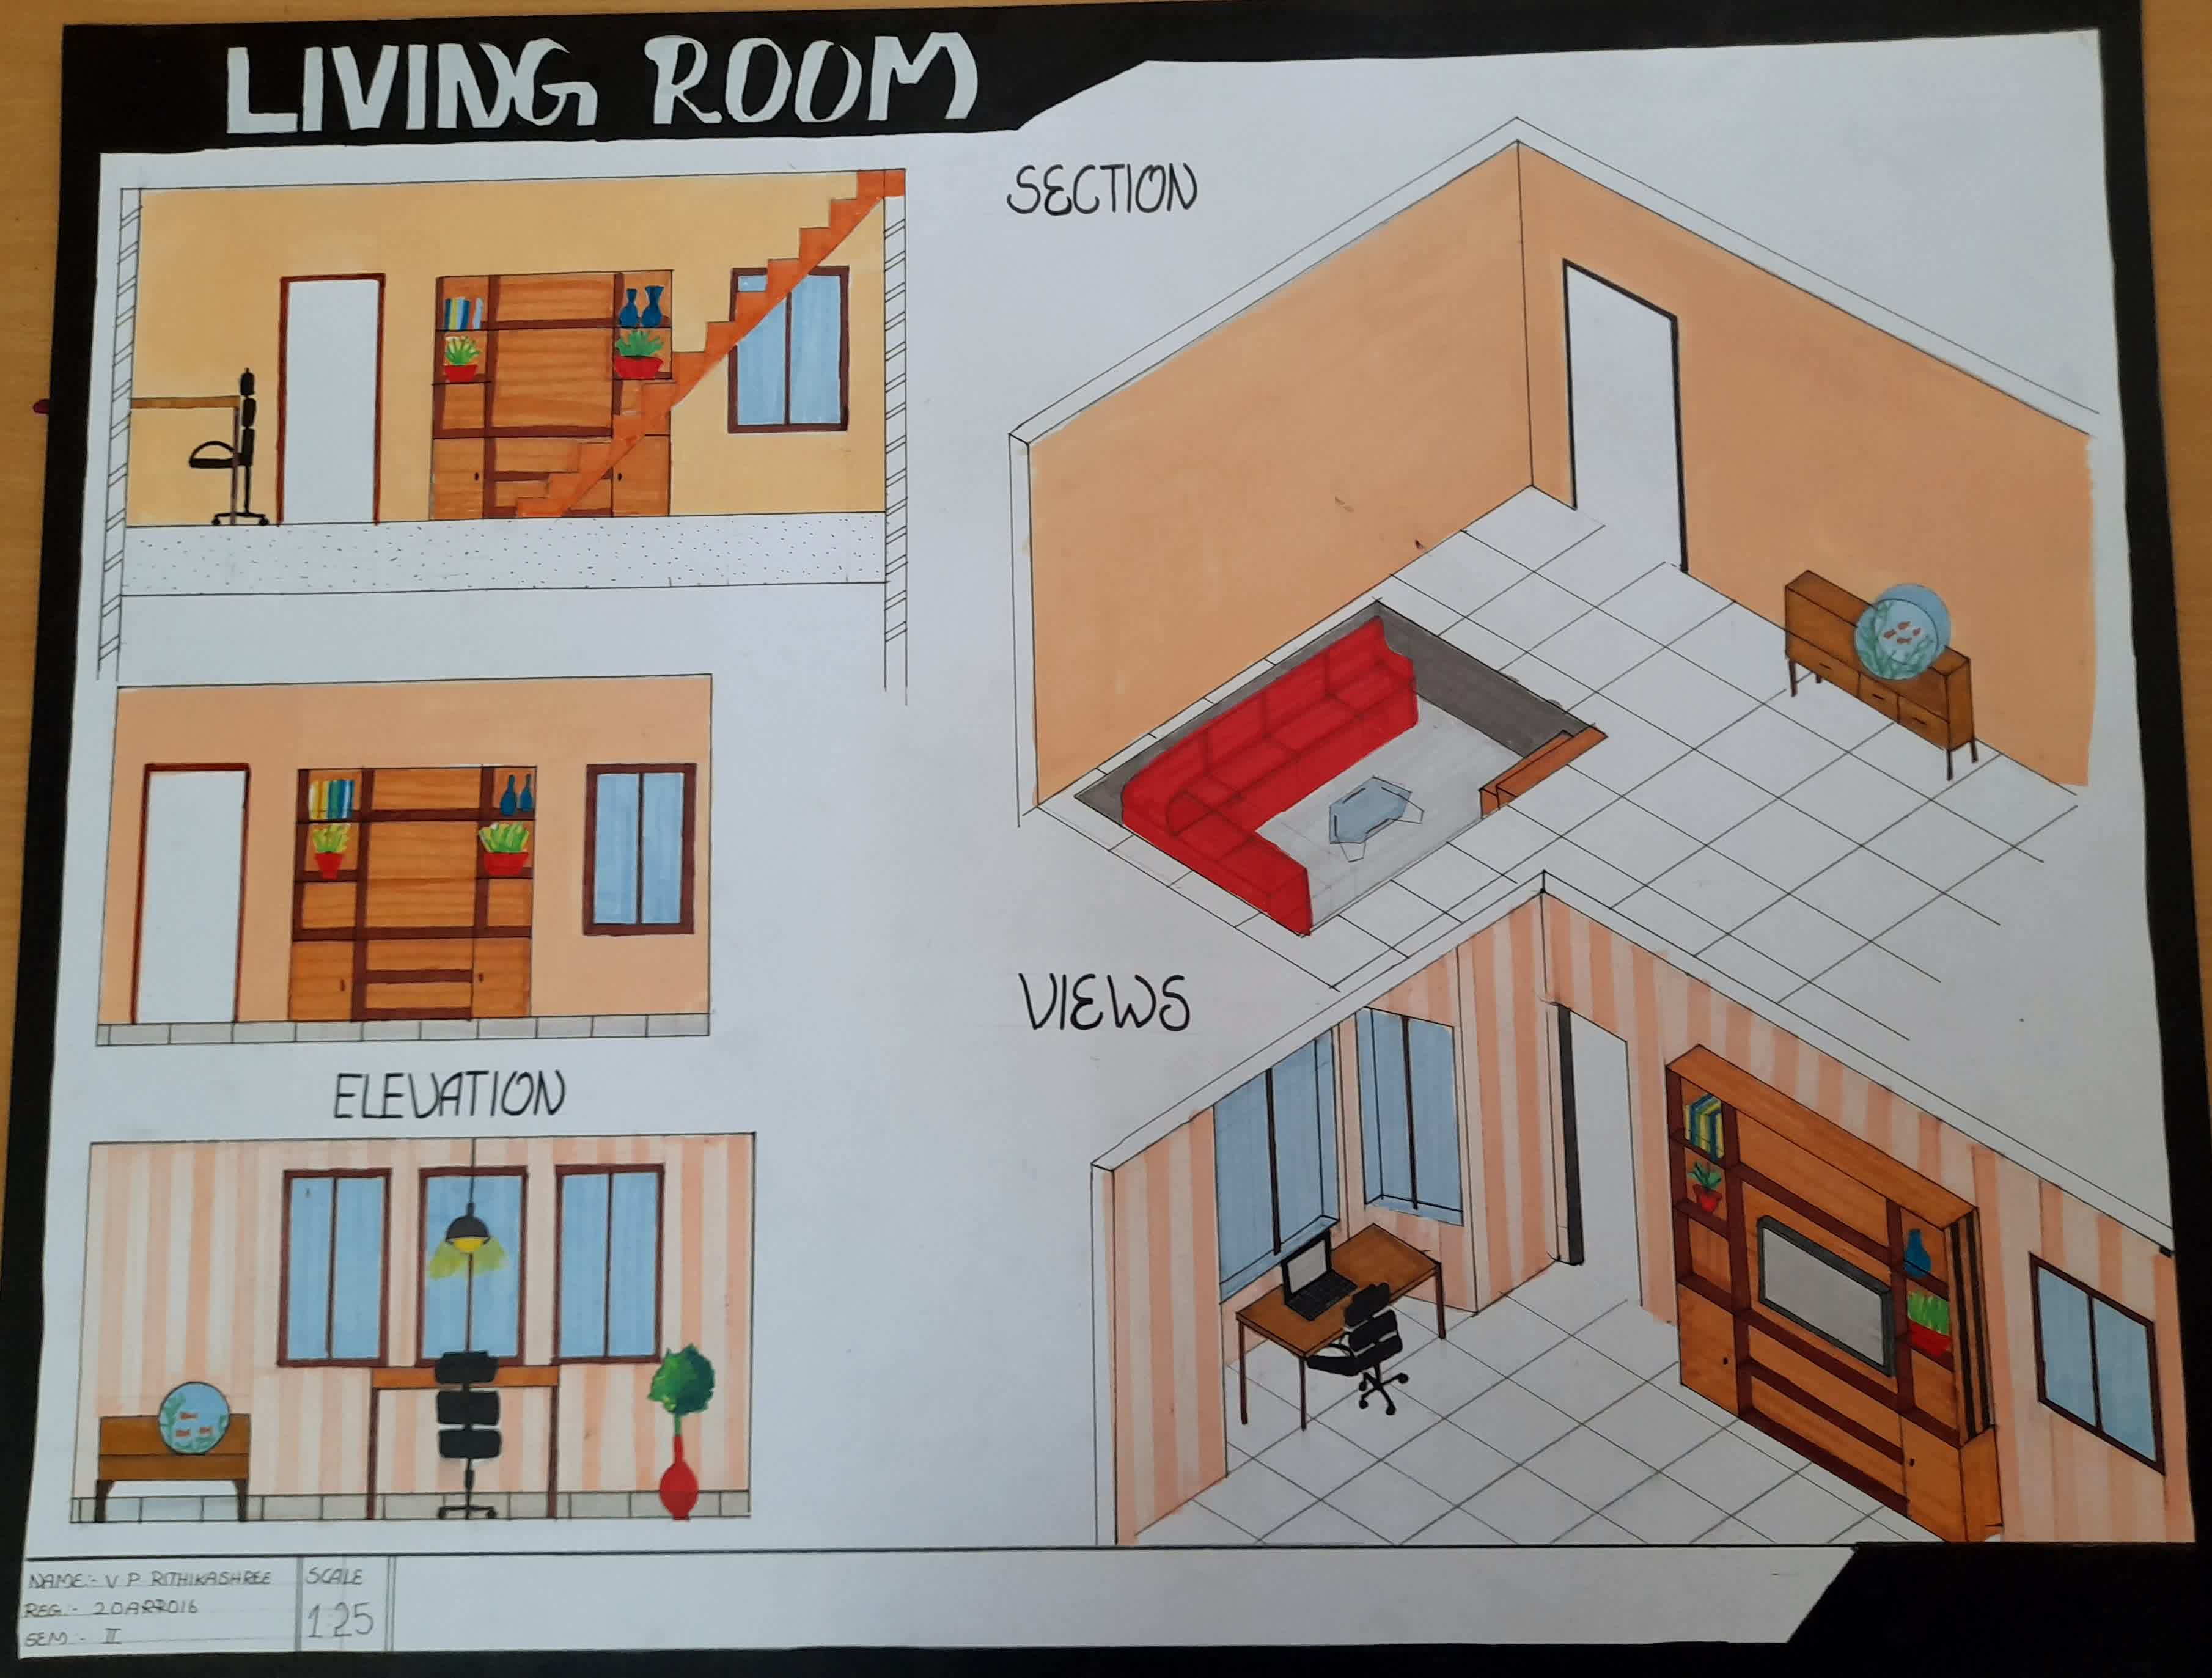 LIVING ROOM
SECTION
VIEWS
ELEVATION
NAME:- V P RITHIKASHREE
REG:- 20ARR016
SEM:- II
SCALE
1:25